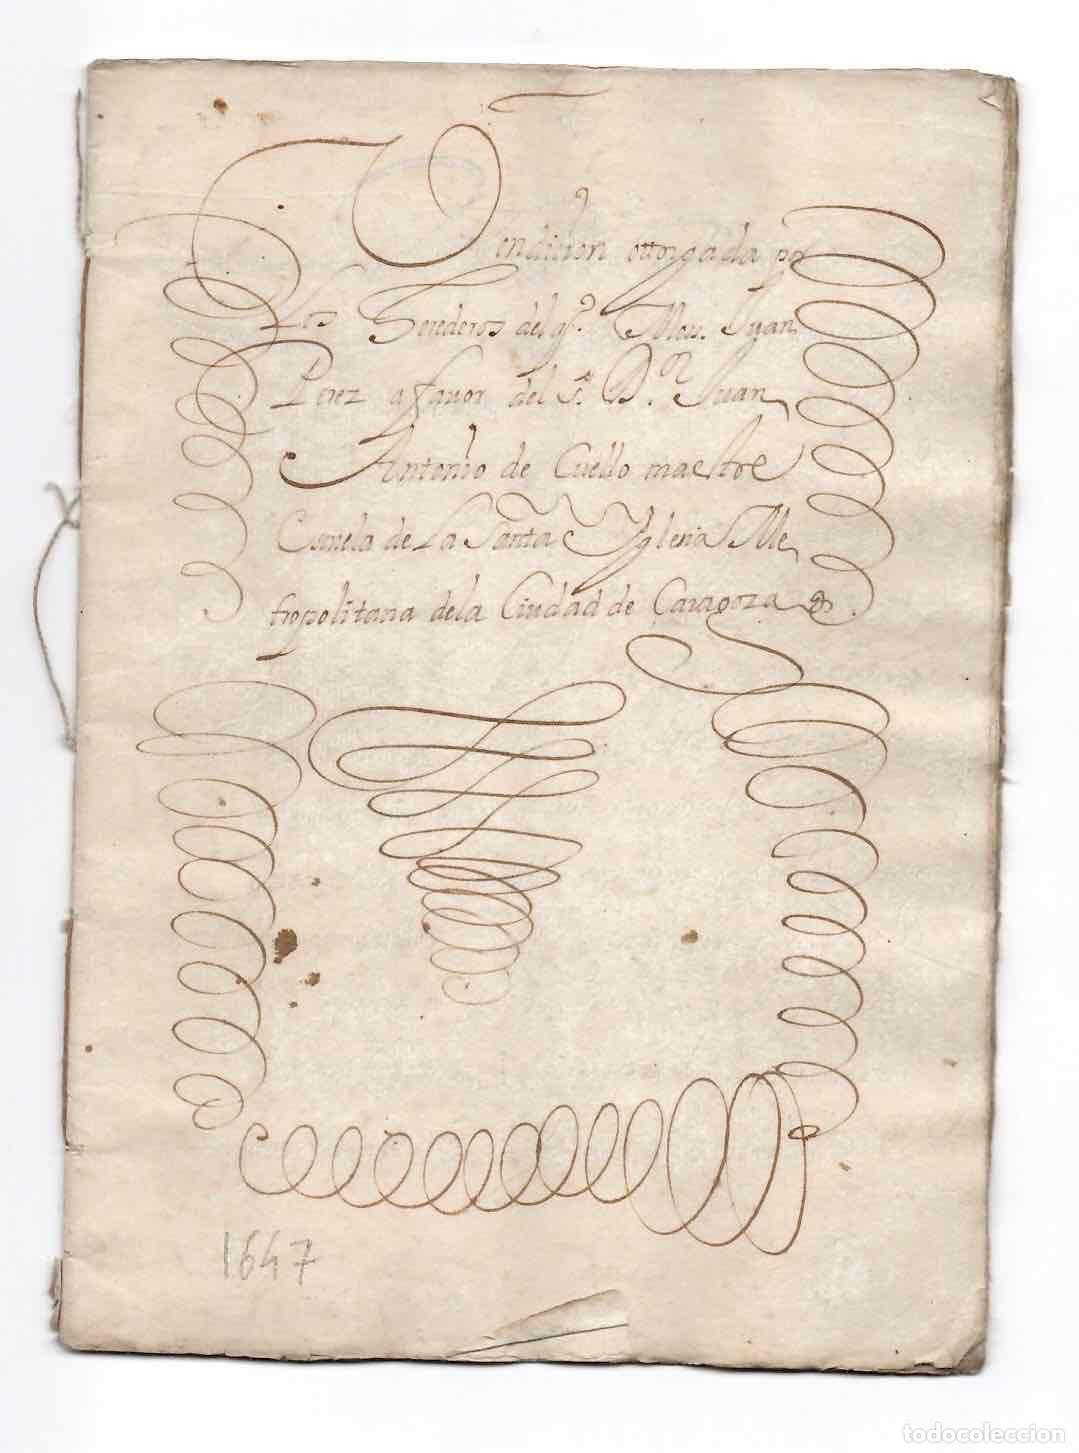 Vendicion ottorgada por
Los Herederos del qº. Mos. Juan
Perez a favor del Sr. Dn. Juan
Antonio de Cuello maestre
Escuela de La Santa Yglesia Me
tropolitana dela Ciudad de Caragoza &
1647
todocoleccion